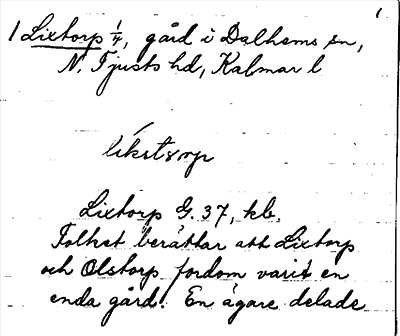 1 Lixtorp 1/4, gård i Dalhems sn,
N. Tjusts hd, Kalmar l
likstorp
Lixtorp G. 37, kb.
Folket berättar att Lixtorp
och Olstorp fordom varit en
enda gård. En ägare delade